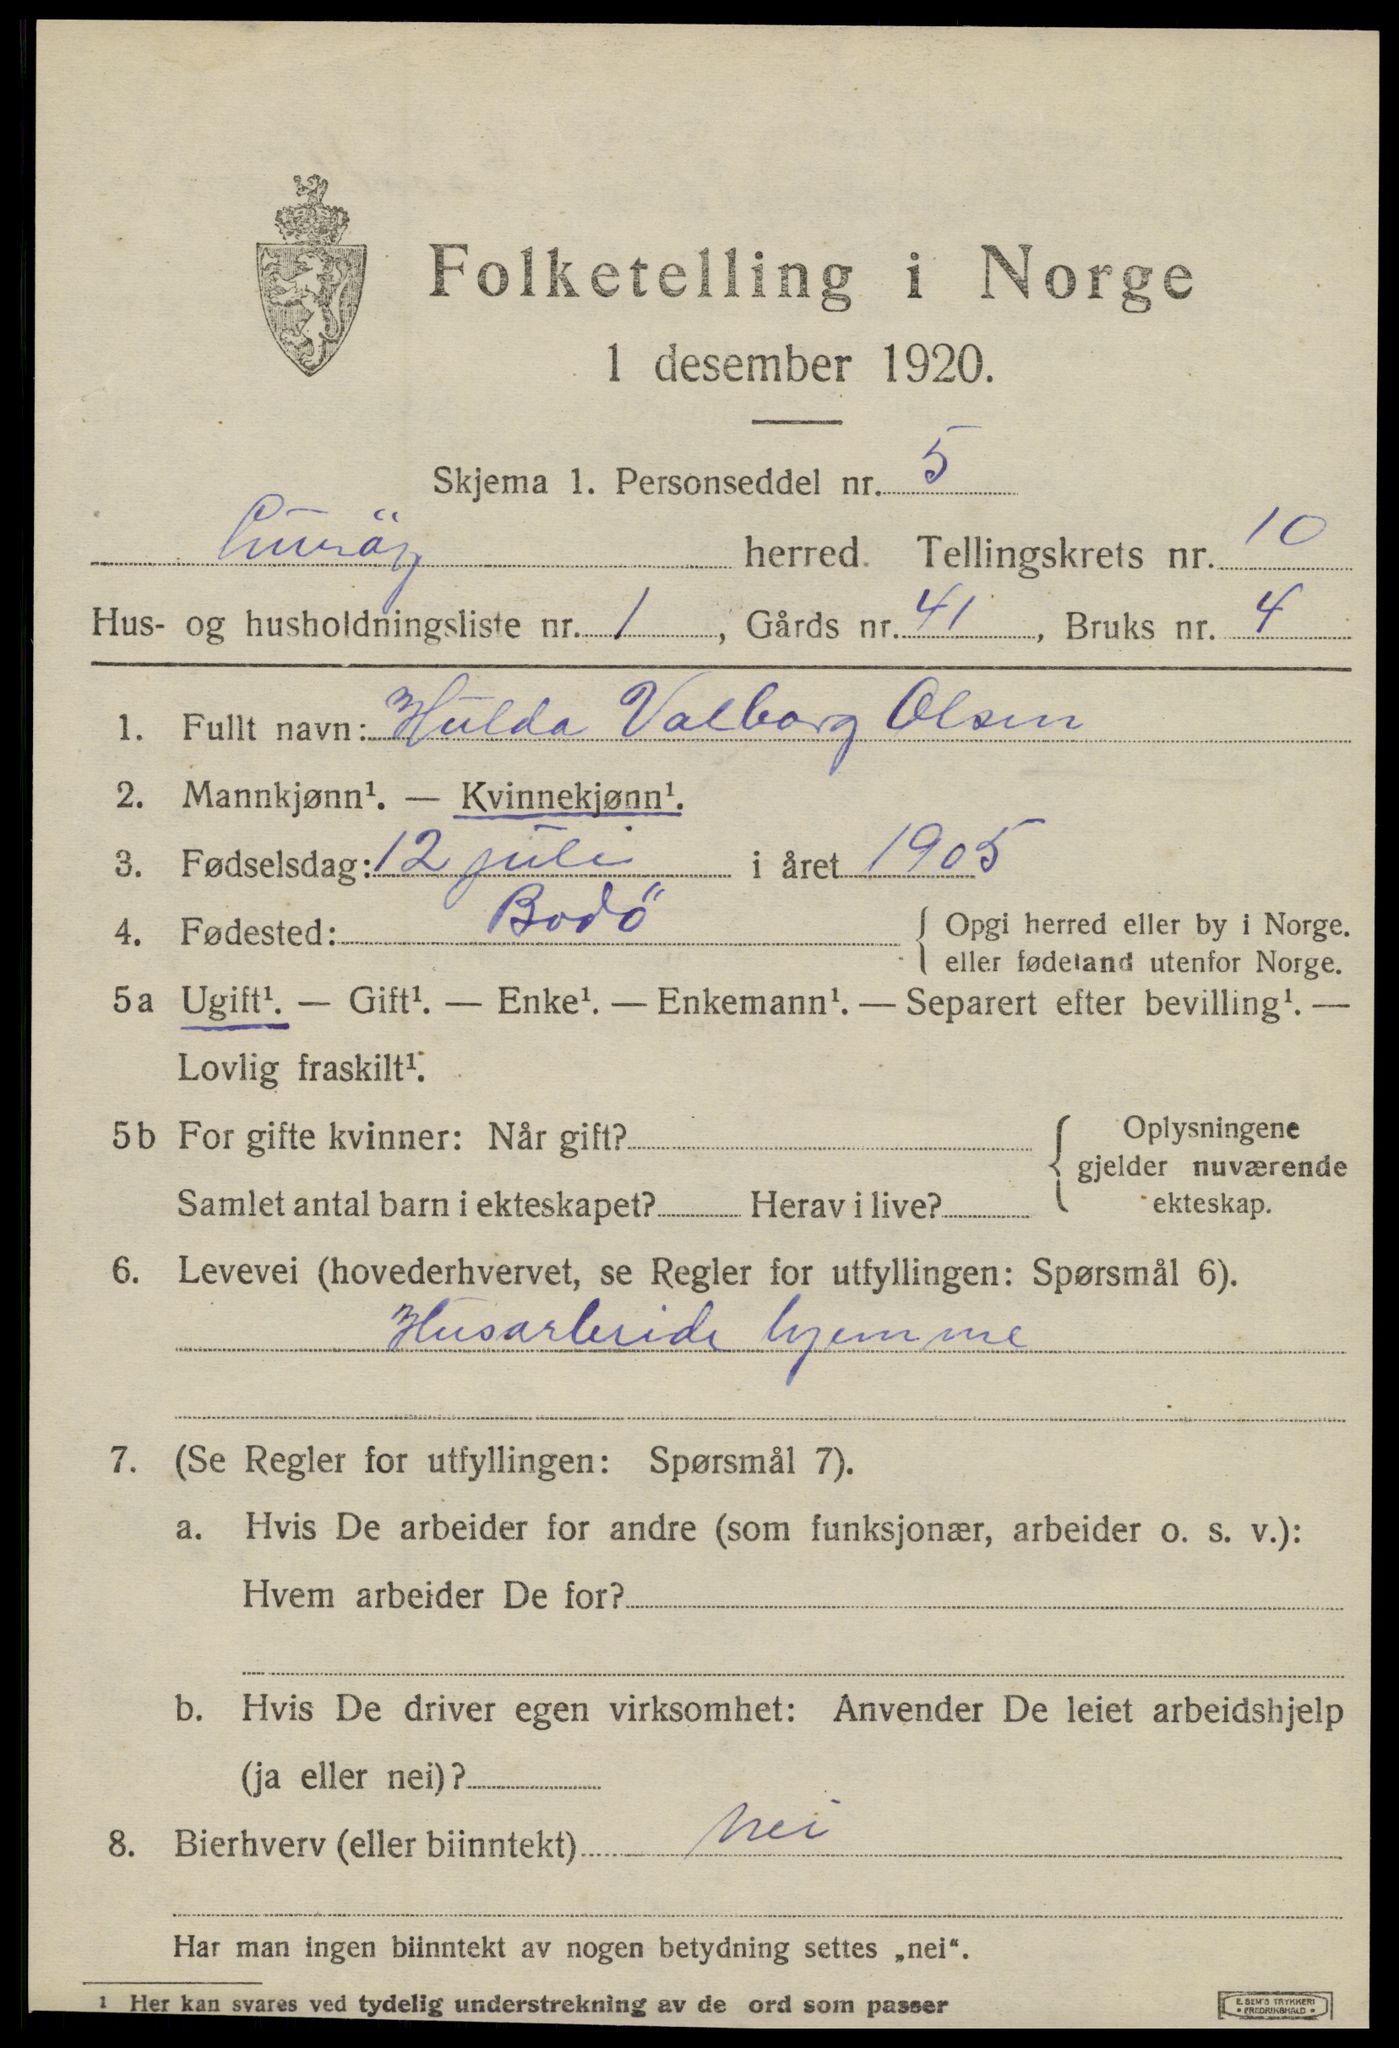 Folketelling i Norge
1 desember 1920.
Skjema 1. Personseddel nr. 5
Luröy herred. Tellingskrets nr. 10
Hus- og husholdningsliste nr. 1, Gårds nr. 41, Bruks nr. 4
1. Fullt navn: Hulda Valborg Olsen
2. Mannkjønn¹. — Kvinnekjønn¹.
3. Fødselsdag: 12 juli i året 1905
4. Fødested: Bodö { Opgi herred eller by i Norge.
eller fødeland utenfor Norge.
5a Ugift¹. — Gift¹. — Enke¹. — Enkemann¹. — Separert efter bevilling¹. —
Lovlig fraskilt¹.
5b For gifte kvinner: Når gift? { Oplysningene
gjelder nuværende
Samlet antal barn i ekteskapet? Herav i live? ekteskap.
6. Levevei (hovederhvervet, se Regler for utfyllingen: Spørsmål 6).
Husarbeide hjemme
7. (Se Regler for utfyllingen: Spørsmål 7).
a. Hvis De arbeider for andre (som funksjonær, arbeider o. s. v.):
Hvem arbeider De for?
b. Hvis De driver egen virksomhet: Anvender De leiet arbeidshjelp
(ja eller nei)?
8. Bierhverv (eller biinntekt) nei
Har man ingen biinntekt av nogen betydning settes „nei“.
1 Her kan svares ved tydelig understrekning av de ord som passer
E. SEM'S TRYKKERI
• FREDRIKSHALD •